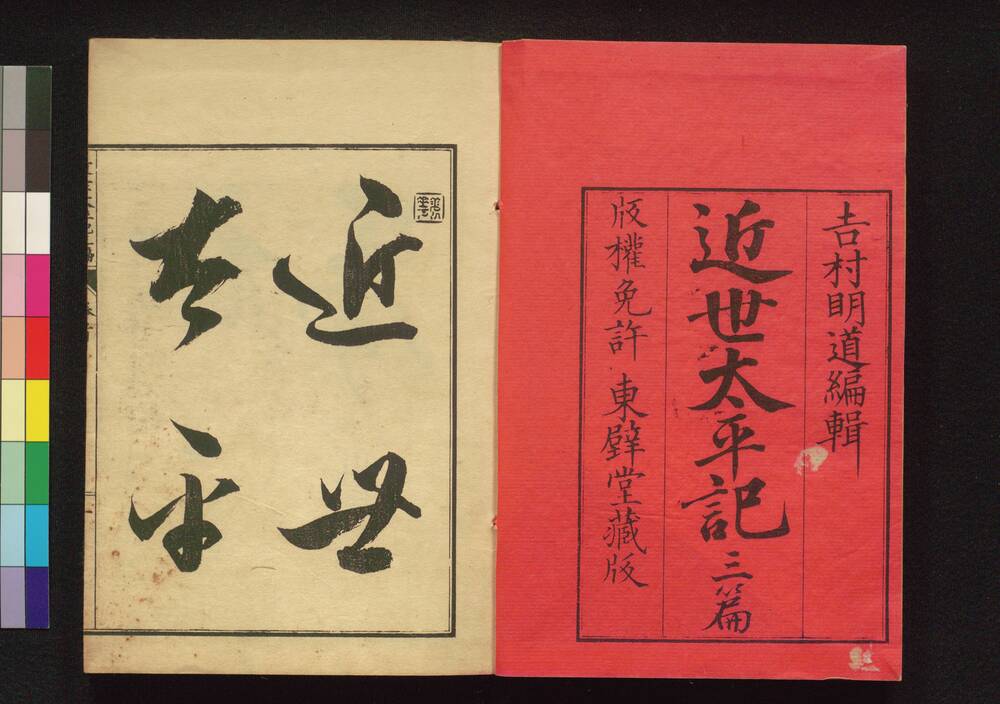 吉村明道編輯
近世太平記三篇
版權免許 東壁堂藏版
近世
太平